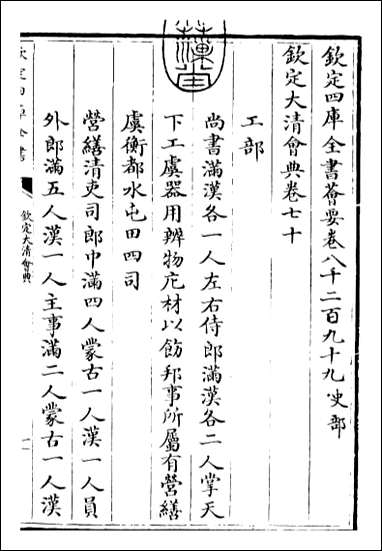 欽定四庫全書薈要卷八千二百九十九 史部
欽定大清會典卷七十
工部
尚書滿漢各一人左右侍郎滿漢各二人掌天
下工虞器用辨物庀材以飭邦事所屬有營繕
虞衡都水屯田四司
營繕清吏司郎中滿四人蒙古一人漢一人員
外郎滿五人漢一人主事滿二人蒙古一人漢
欽定四庫全書
欽定大清會典
一